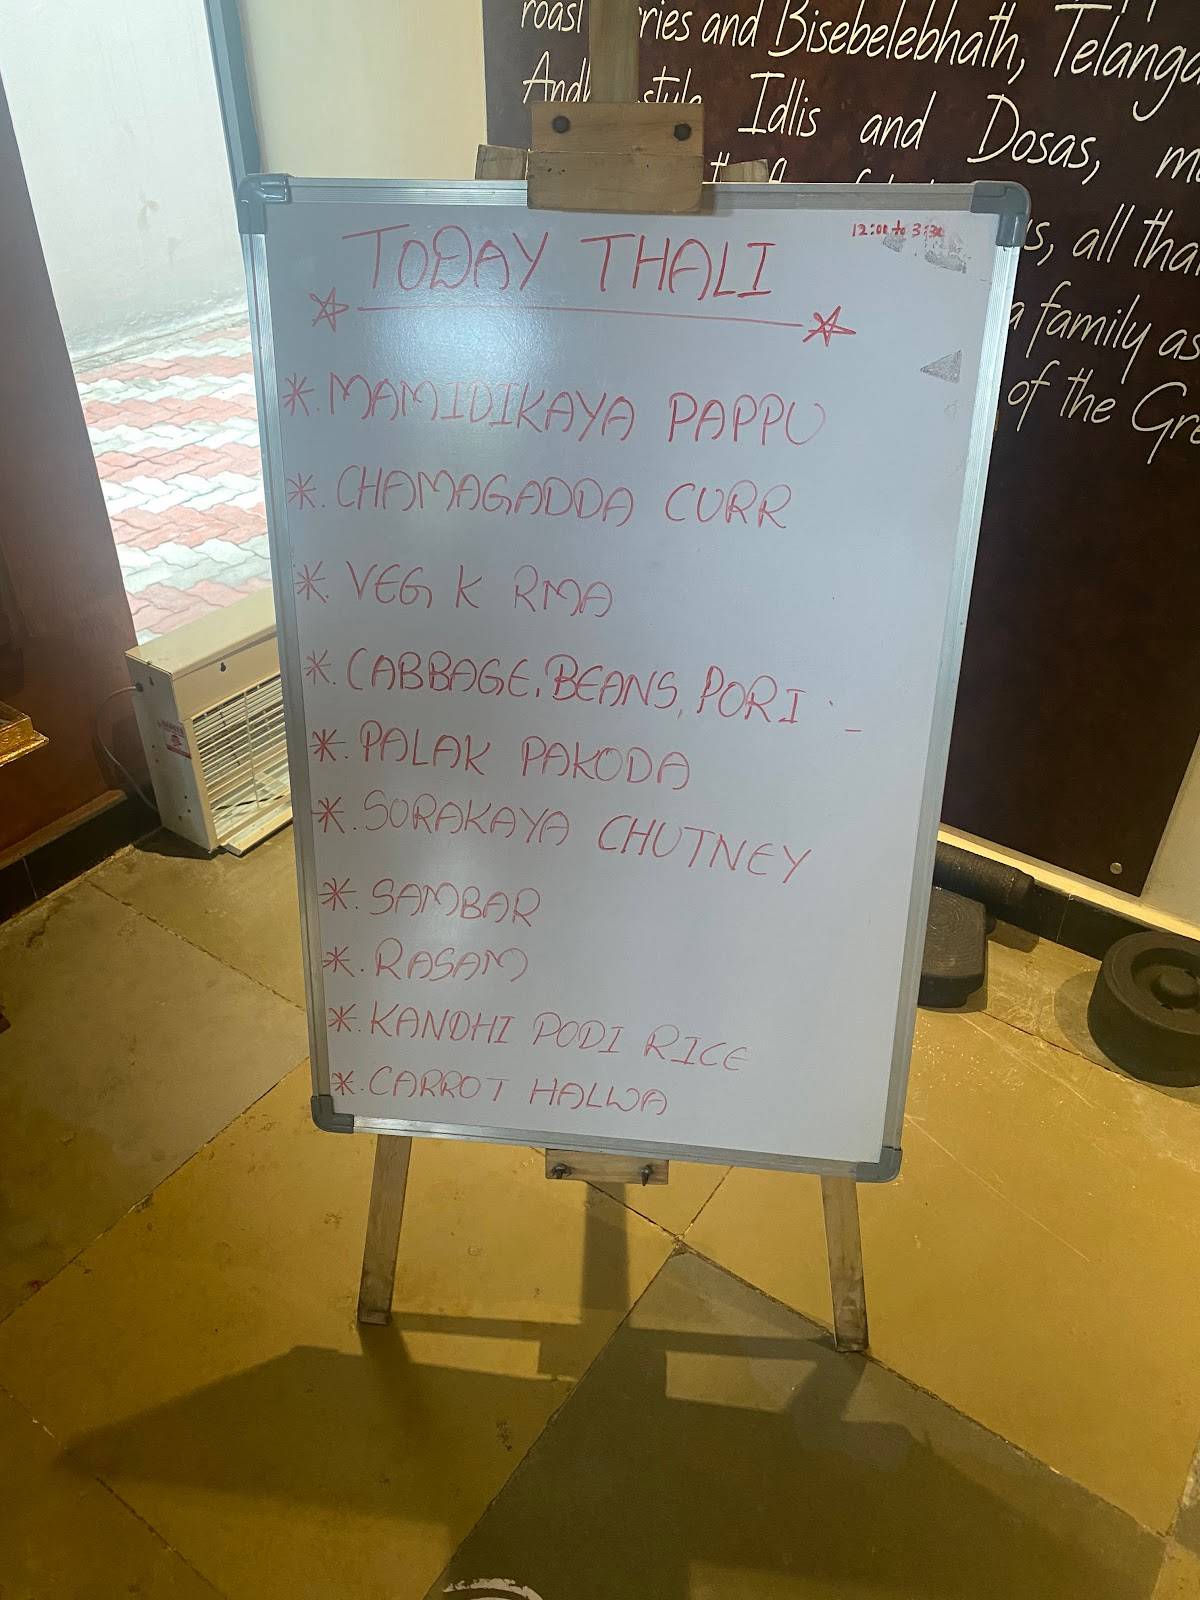 roast
rries and Bisebelebhath, Telanga
style Idlis and Dosas, m
s, all that
a family as
of the Gre
12:00 to 3:30
TODAY THALI
*. MAMIDIKAYA PAPPU
*. CHAMAGADDA CURR
*. VEG K RMA
*. CABBAGE, BEANS, PORI
*. PALAK PAKODA
*. SORAKAYA CHUTNEY
*. SAMBAR
*. RASAM
*. KANDHI PODI RICE
*. CARROT HALWA